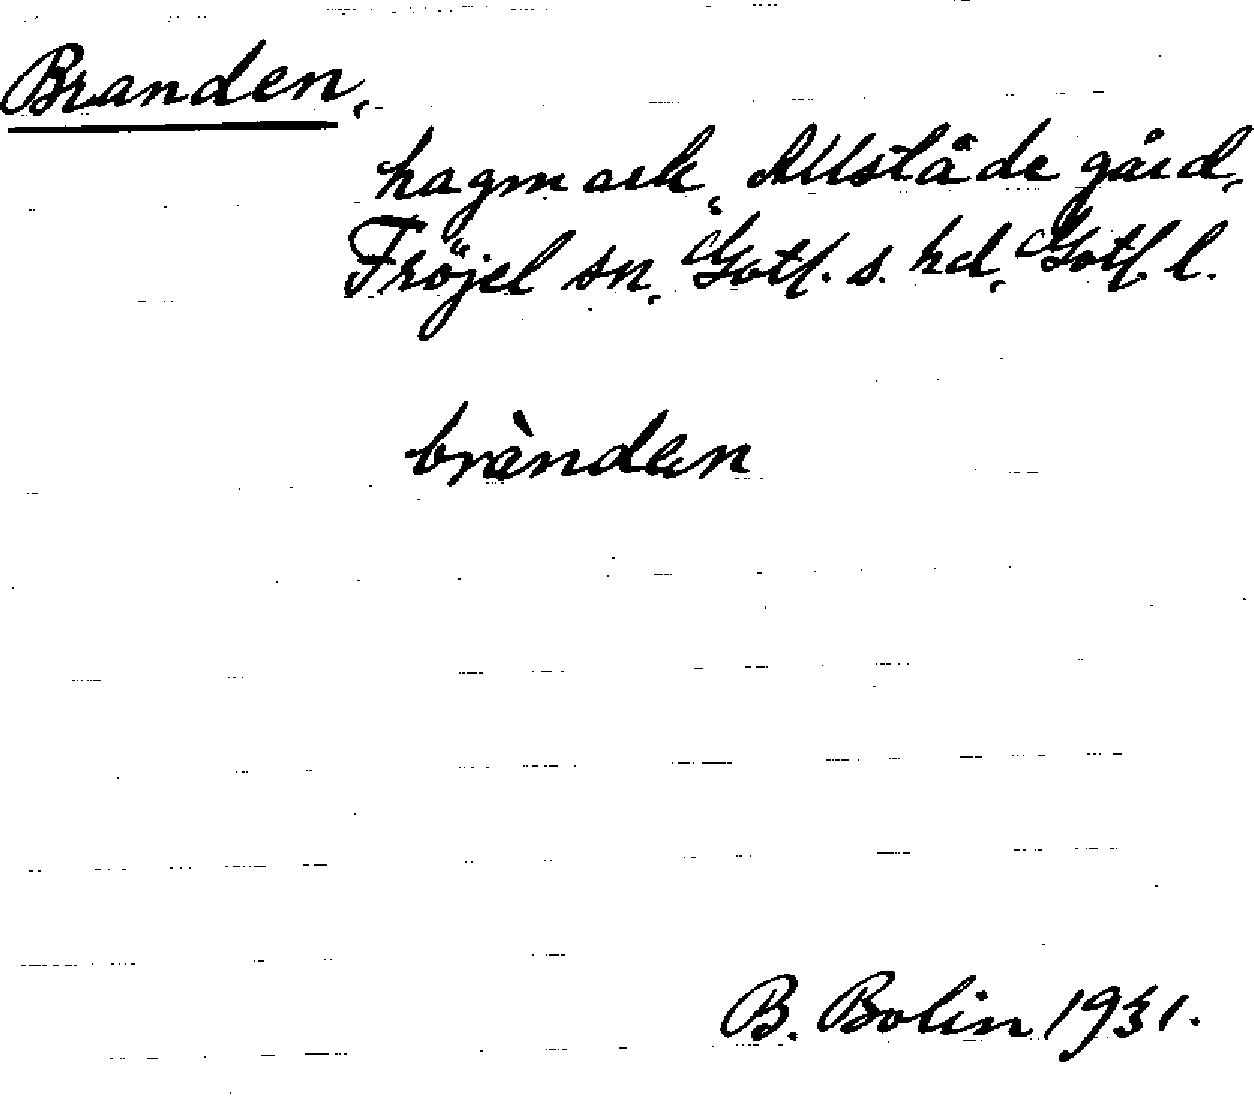 Branden,
hagmark, Allstäde gård,
Fröjel sn, Gotl. s. hd, Gotl. l.
bràndαn
B. Bolin 1931.